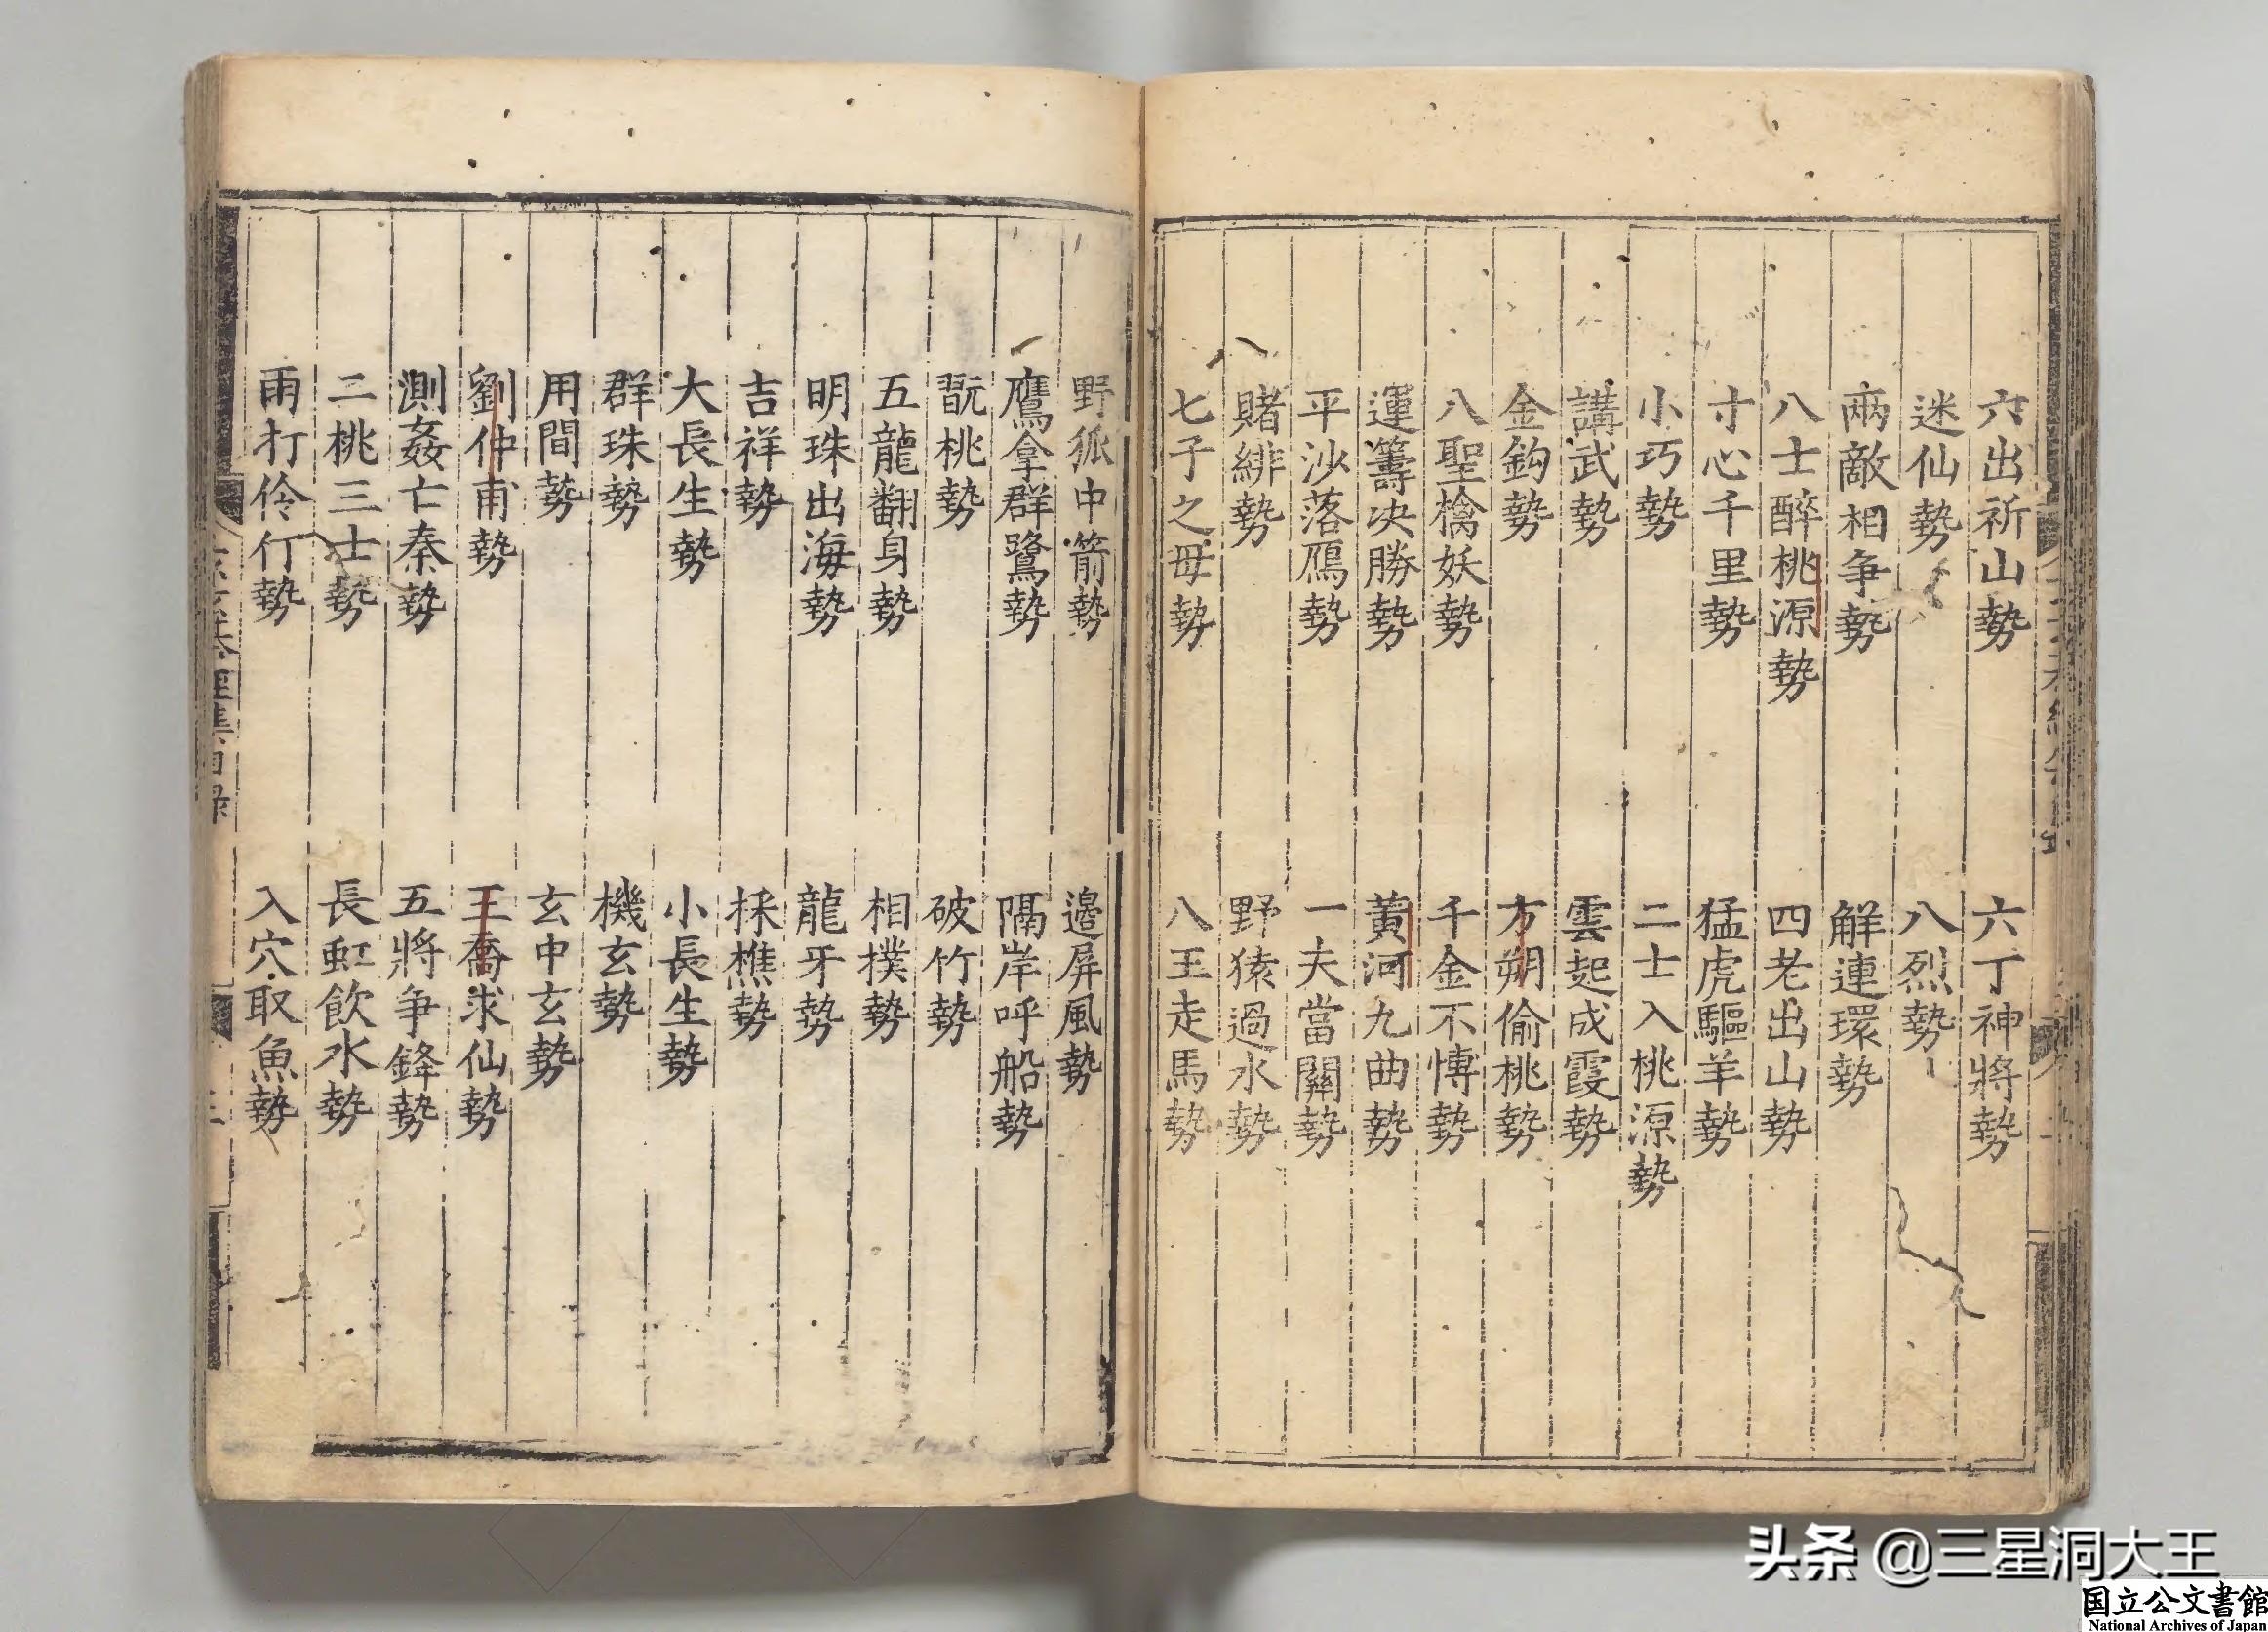 六出祈山勢
六丁神將勢
迷仙勢
八烈勢
兩敵相争勢
解連環勢
八士醉桃源勢
四老出山勢
寸心千里勢
猛虎驅羊勢
小巧勢
二士入桃源勢
講武勢
雲起成霞勢
金鈎勢
方朔偷桃勢
八聖擒妖勢
千金不愽勢
運籌决勝勢
黄河九曲勢
平沙落鴈勢
一夫當關勢
賭緋勢
野猿過水勢
七子之毋勢
八王走馬勢
野狐中箭勢
邉屏風勢
鷹拿群鷺勢
隔岸呼船勢
翫桃勢
破竹勢
五龍翻身勢
相撲勢
明珠出海勢
龍牙勢
吉祥勢
採樵勢
大長生勢
小長生勢
群珠勢
機玄勢
用間勢
玄中玄勢
劉仲甫勢
王喬求仙勢
測姦亡秦勢
五將争鋒勢
二桃三士勢
長虹飲水勢
雨打伶仃勢
入穴取魚勢
头条 @三星洞大王
国立公文書館
National Archives of Japan